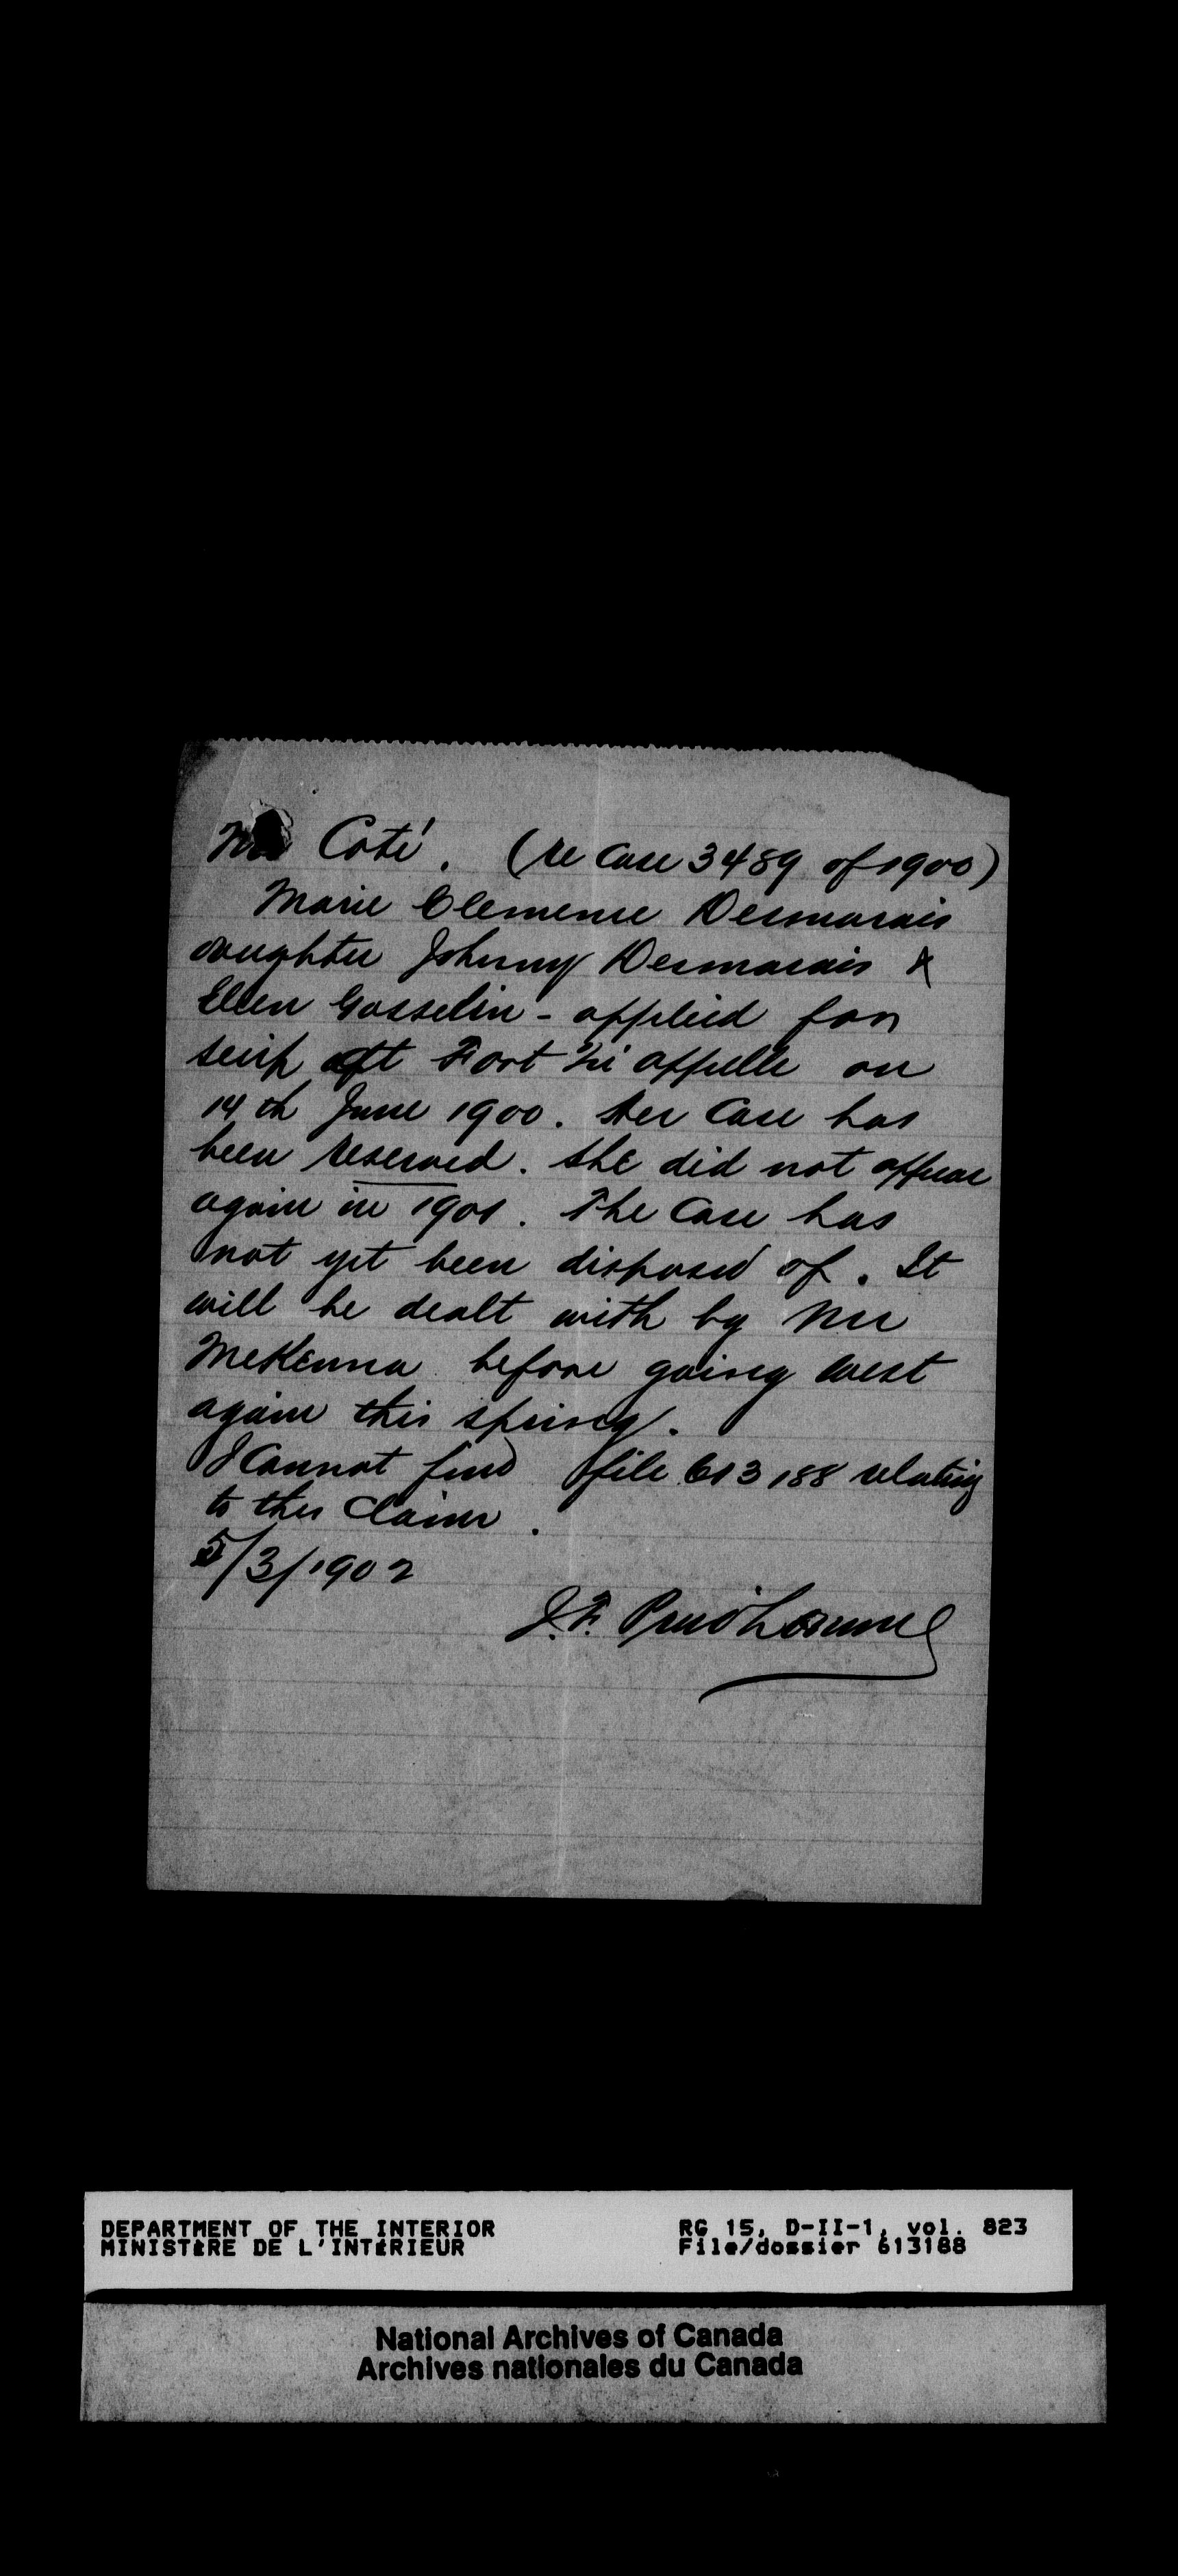 Mr Coté. (re Case 3489 of 1900)
Marie Clemence Desmarais
daughter Johnny Desmarais &
Ellen Gosselin - applied for
scrip at Fort Qu'appelle on
14th June 1900. Her Case has
been reserved. She did not appear
again in 1901. The Case has
not yet been disposed of. It
will be dealt with by Mr
McKenna before going West
again this spring.
I Cannot find file 613188 relating
to this Claim.
5/3/1902
J.F. Prud'homme
DEPARTMENT OF THE INTERIOR
MINISTÈRE DE L'INTÉRIEUR
RG 15, D-II-1, vol. 823
File/dossier 613188
National Archives of Canada
Archives nationales du Canada